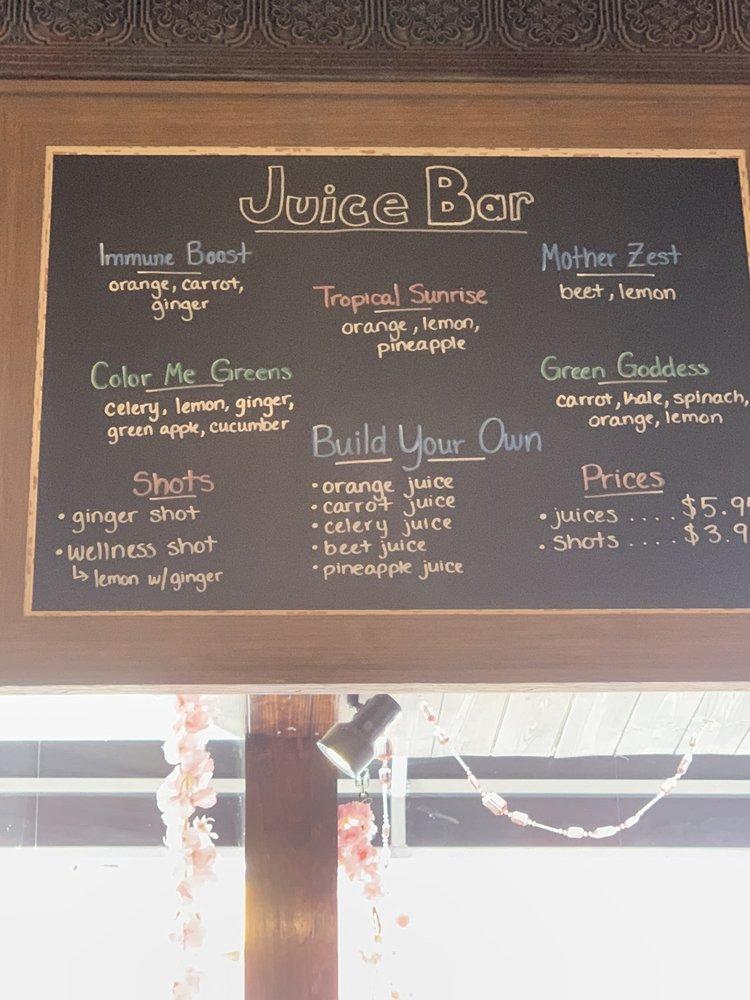 Juice Bar
Immune Boost
orange, carrot,
ginger
Tropical Sunrise
orange, lemon,
pineapple
Mother Zest
beet, lemon
Color Me Greens
celery, lemon, ginger,
green apple, cucumber
Green Goddess
carrot, kale, spinach,
orange, lemon
Shots
• ginger shot
• wellness shot
↳ lemon w/ginger
Build Your Own
• orange juice
• carrot juice
• celery juice
• beet juice
• pineapple juice
Prices
• juices ....
• shots ....